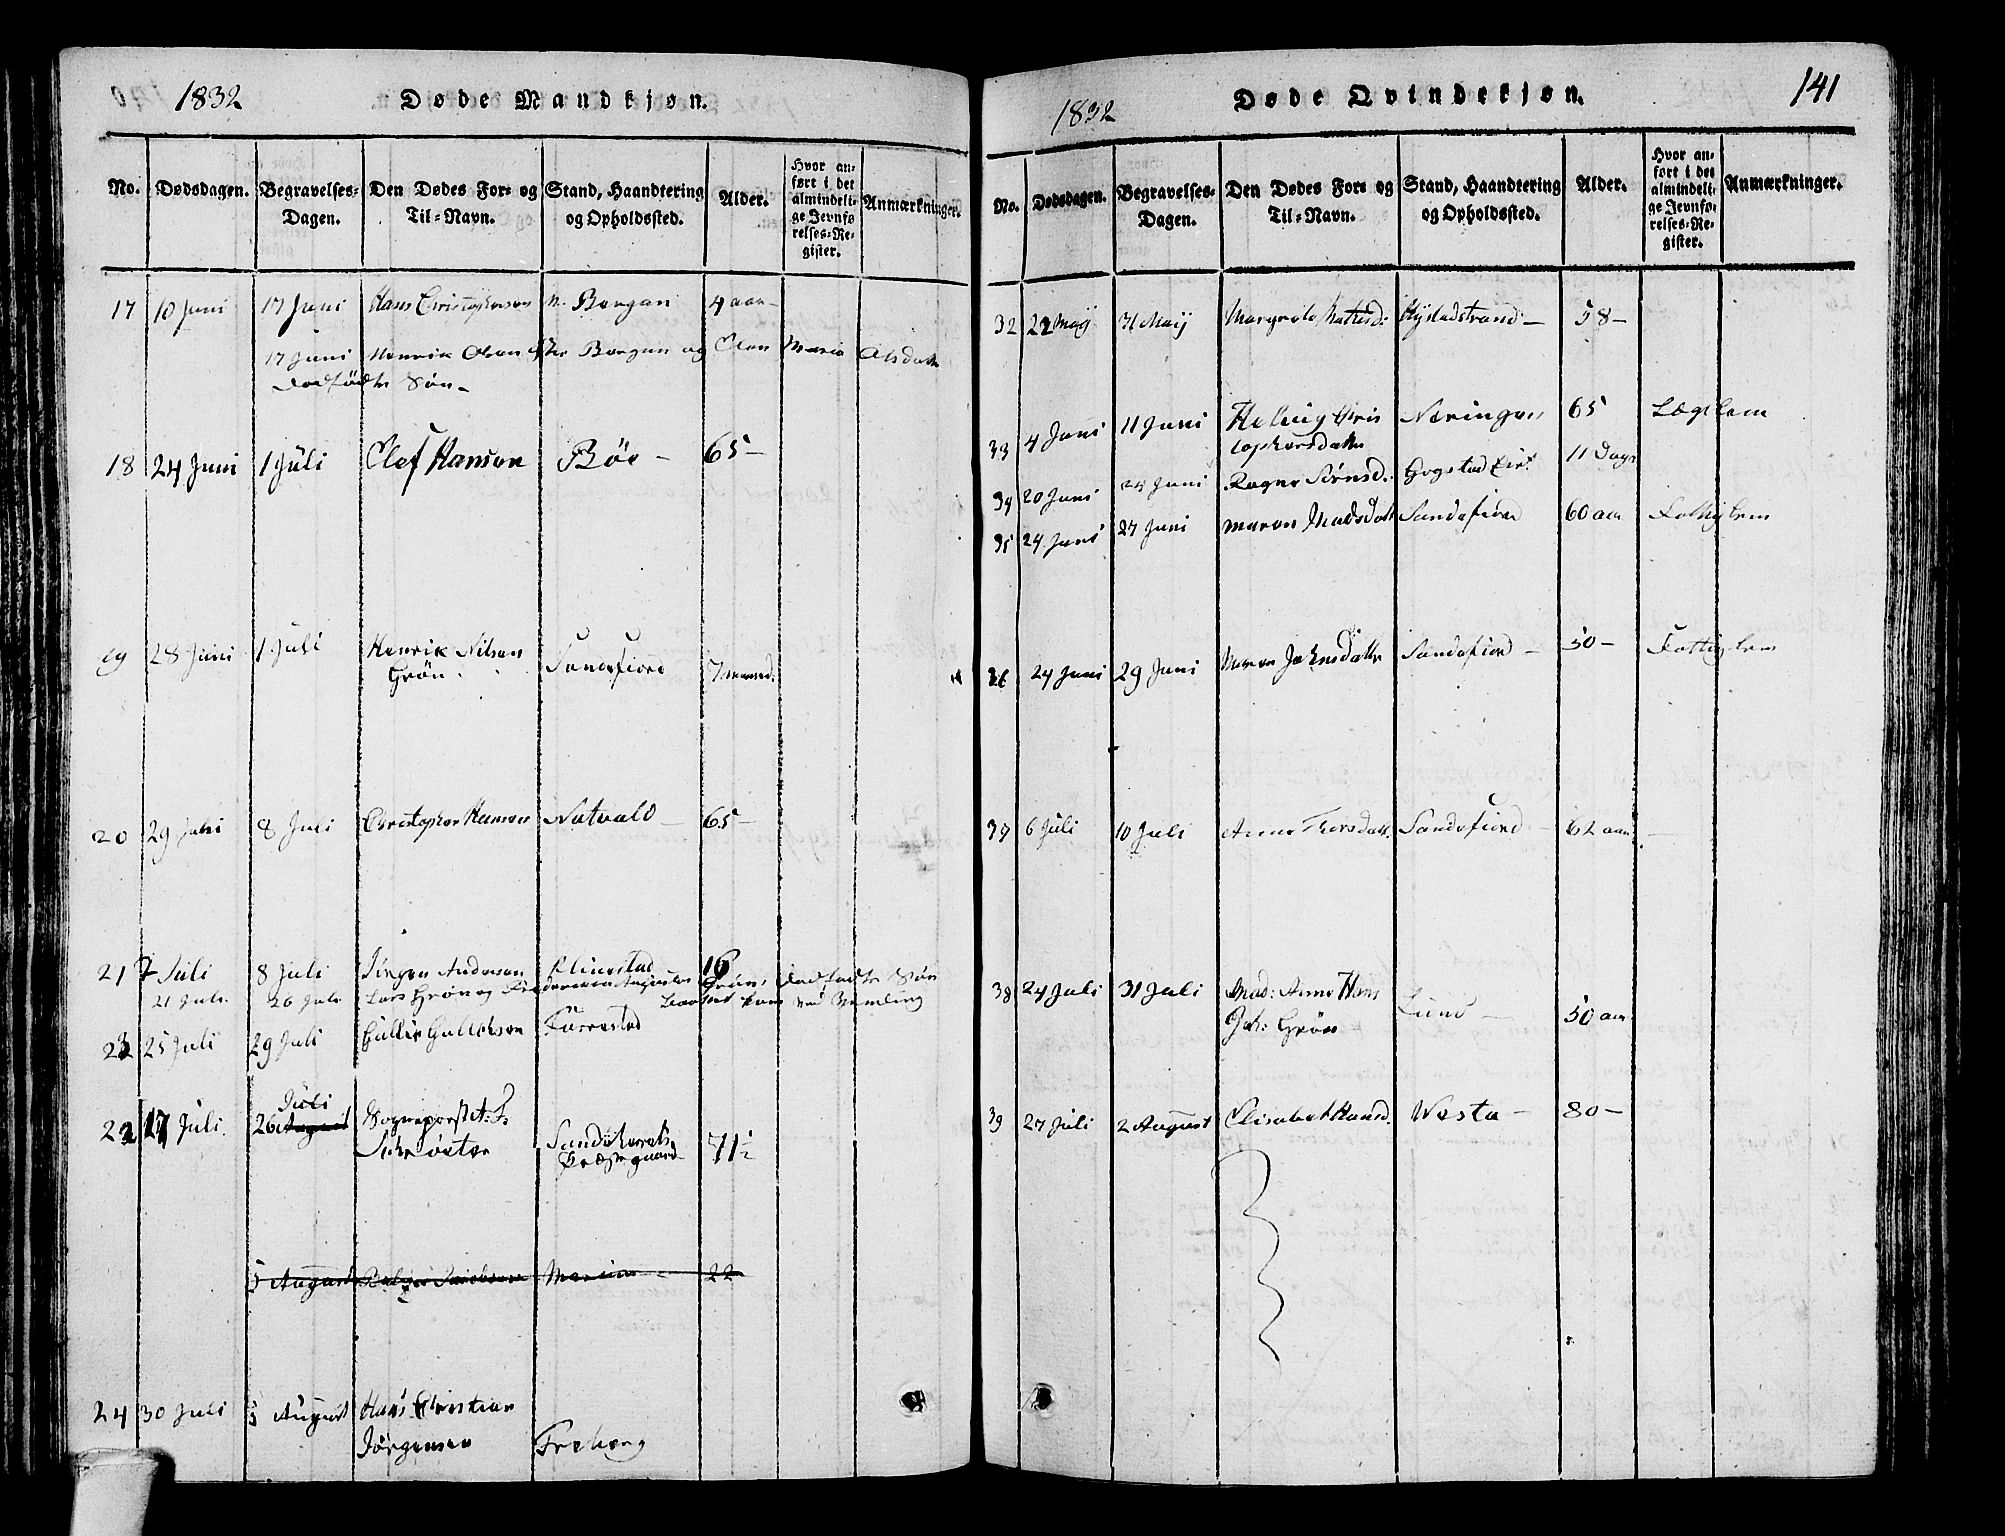 1832 Døde Mandkjøn.
No. Dødsdagen. Begravelses-Dagen. Den Dødes For- og Til-Navn. Stand, Haandtering og Opholdssted. Alder. Hvor anført i det almindelige Jevnførelses-Register. Anmærkninger.
17 10 Juni 17 Juni Hans Christophersen n. Borgen 4 aar
17 Juni Henrik Olsen Borgen og Elen Maria Olsdatter
dødfødte Søn
18 24 Juni 1 Juli Olef Hansen Böe 65
19 28 Juni 1 Juli Henrik Nilsen Sandefiord 7 maaned.
Grön
20 29 Juni 8 Juli Christopher Hansen Natvald 65
21 7 Juli 8 Juli Jörgen Andersen Clinestad 16
21 Juli 26 Juli Lars Grön og Gröns dødfødte Søn
23 25 Juli 29 Juli Gullik Gullichsen Furrestad
22 17 Juli 26 Juli August Sognepræst A: F:
Schröeter Sandeherreds Præstegaard 71½
5 August Jacobsen 22
24 30 Juli 5 August Hans Christian
Jörgensen Freberg
1832 Døde Qvindekjøn. 141
No. Dødsdagen. Begravelses-Dagen. Den Dødes For- og Til-Navn. Stand, Haandtering og Opholdssted. Alder. Hvor anført i det almindelige Jevnførelses-Register. Anmærkninger.
32 22 Maij 31 Maij Margrete Hystadstrand 58
33 4 Juni 11 Juni Helvig Chris Næringen 65 Lægslem
tophersdatter
34 20 Juni 24 Juni Ragne Sörnsd. Gogstad Eie 11 Dage
35 24 Juni 27 Juni Maren Madsdatt Sandefiord 60 aar Fattiglem
36 24 Juni 29 Juni Maren Johnsdatter Sandefiord 50 Fattiglem
37 6 Juli 10 Juli Anne Thorsdatt. Sandefiord 62 aar
38 24 Juli 31 Juli Mad: Anne Hans Lund 50 aar
Joh: Grön
39 27 Juli 2 August Elisabet Hansd. Westa 80